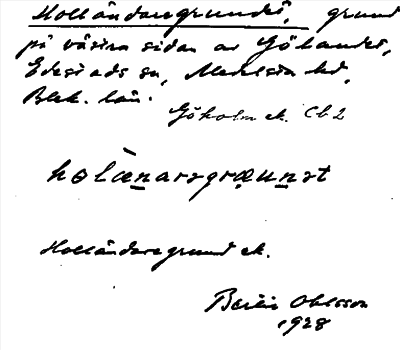 Holländaregrundet, grund
på västra sidan av Gölandet,
Edestads sn, Medelsta hd,
Blek. län.
Göholm ek. Cb2
holænarǝgræunǝt
Holländaregrund ek.
Bertil Ohlsson
1928